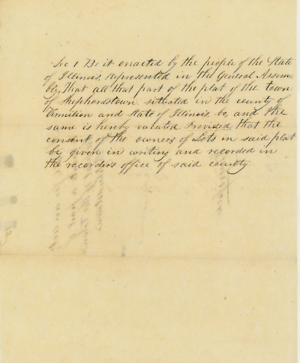 Sec 1 Be it enacted by the people of the State
of Illinois, represented in the General Assem
bly, that all that part of the plat of the town
of Shepherdstown situated in the county of
Vermilion and state of Illinois be and the
same is hereby vacated Provided that the
consent of the owners of Lots in said plat
be given in writing and recorded in
the recorders office of said county